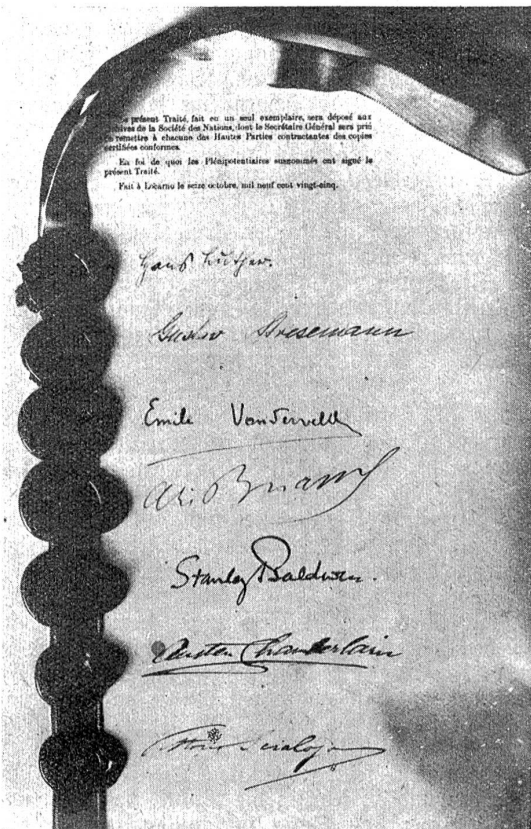 présent Traité, fait en un seul exemplaire, sera déposé aux
de la Société des Nations, dont le Secrétaire Général sera prié
remettre à chacune des Hautes Parties contractantes des copies
certifiées conformes.
En foi de quoi les Plénipotentiaires susnommés ont signé le
présent Traité.
Fait à Locarno le seize octobre, mil neuf cent vingt-cinq.
Hans Luther.
Gustav Stresemann
Emile Vandervelde
Ari Briand
Stanley Baldwin.
Austen Chamberlain
Scialoja